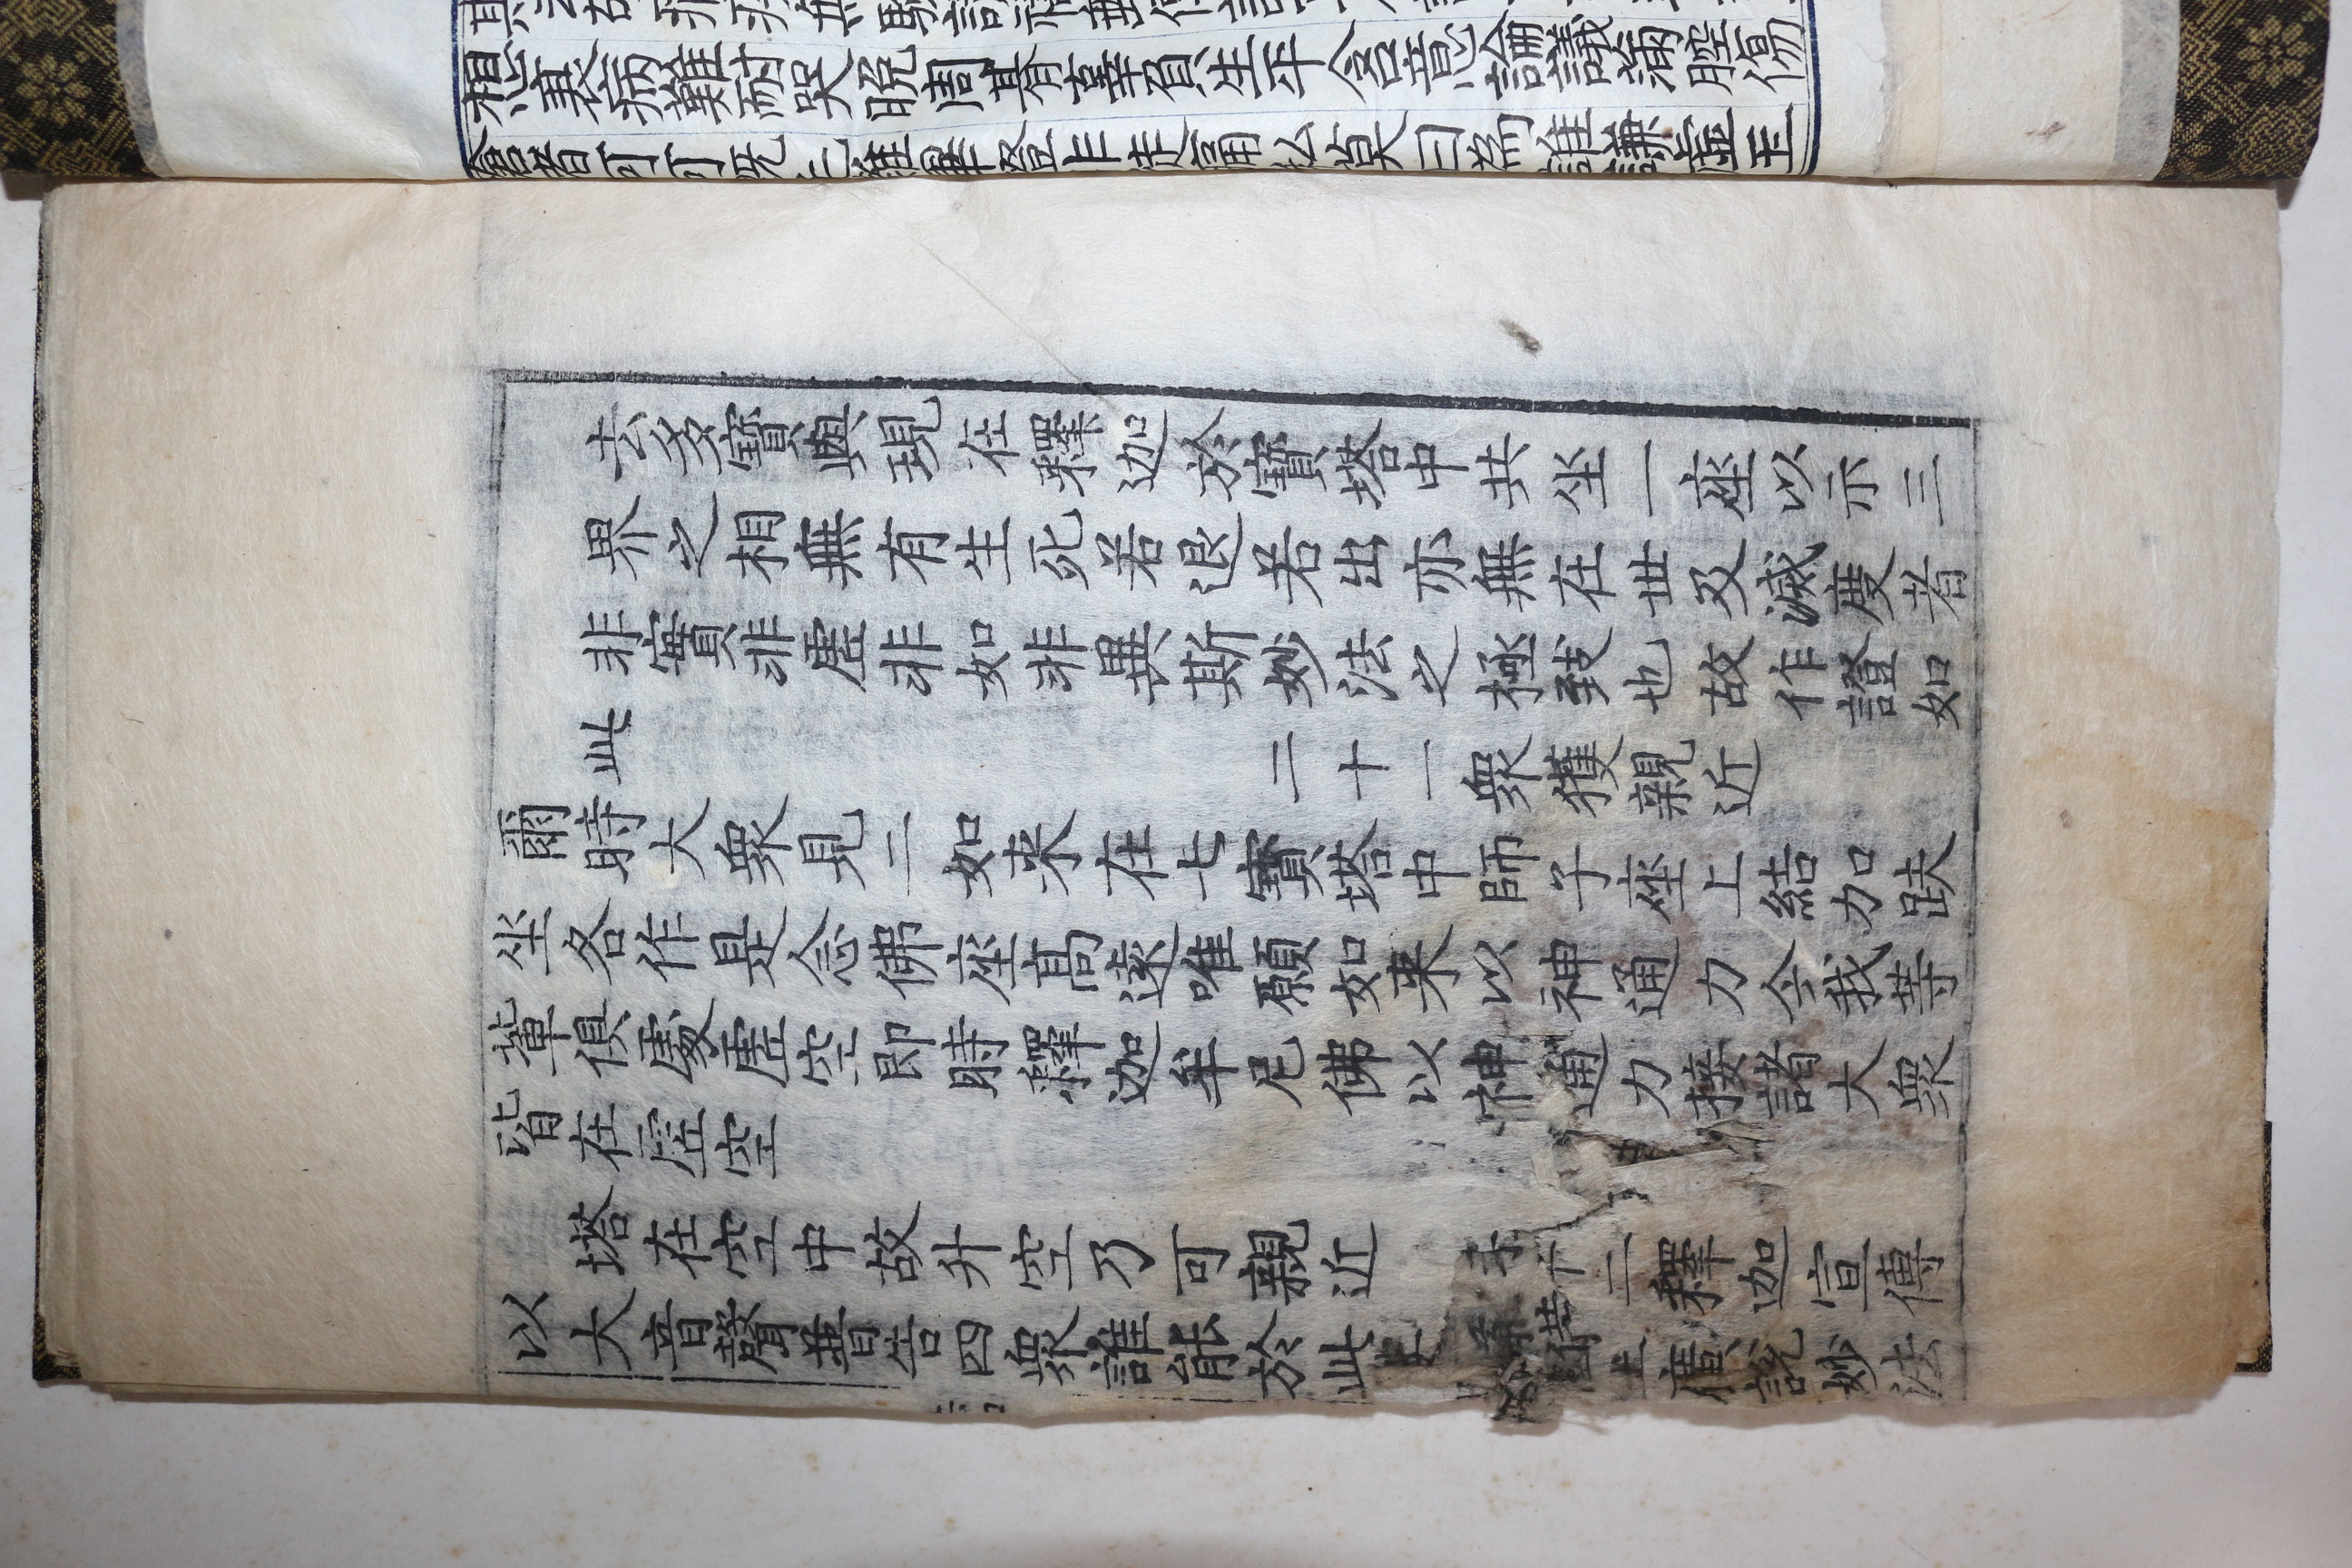 難耐哭晩周朞有辜負生平含意論議滿腔傷
去多寶與現在釋迦於寶塔中共坐一座以示三
界之相無有生死若退若出亦無在世及滅度者
非實非虛非如非異斯妙法之極致也故作證如
此
二十一衆獲親近
爾時大衆見二如来在七寶塔中師子座上結加趺
坐各作是念佛座高遠唯願如来以神通力令我等
輩俱處虛空即時釋迦牟尼佛以神通力接諸大衆
皆在虛空
塔在空中故升空乃可親近
十二釋迦宣傳
以大音聲普告四衆誰能於此土廣說妙法